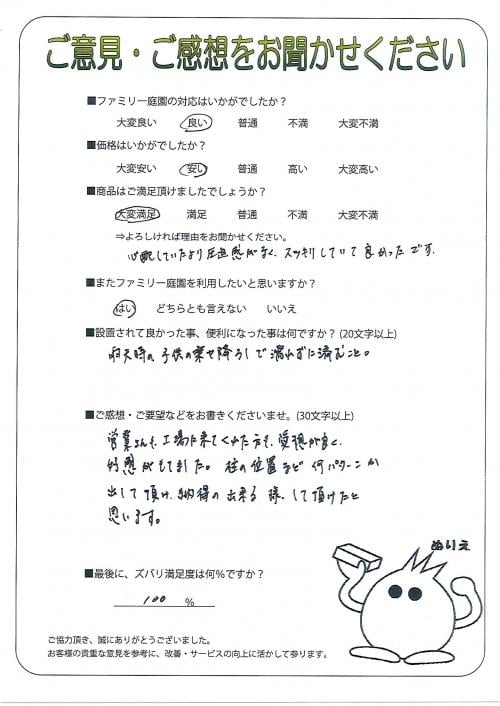 ご意見・ご感想をお聞かせください
■ファミリー庭園の対応はいかがでしたか?
大変良い 良い 普通 不満 大変不満
■価格はいかがでしたか?
大変安い 安い 普通 高い 大変高い
■商品はご満足頂けましたでしょうか?
大変満足 満足 普通 不満 大変不満
⇒よろしければ理由をお聞かせください。
心配していたより圧迫感がなく、スッキリしていて良かったです。
■またファミリー庭園を利用したいと思いますか?
はい どちらとも言えない いいえ
■設置されて良かった事、便利になった事は何ですか?(20文字以上)
雨天時の子供の乗せ降ろしで濡れずに済むこと。
■ご感想・ご要望などをお書きくださいませ。(30文字以上)
営業さんも、工場に来てくれた方も、愛想が良く、
好感がもてました。柱の位置など何パターンか
出して頂け、納得の出来る様、して頂けたと
思います。
ぬりえ
■最後に、ズバリ満足度は何%ですか?
100 %
ご協力頂き、誠にありがとうございました。
お客様の貴重な意見を参考に、改善・サービスの向上に活かして参ります。